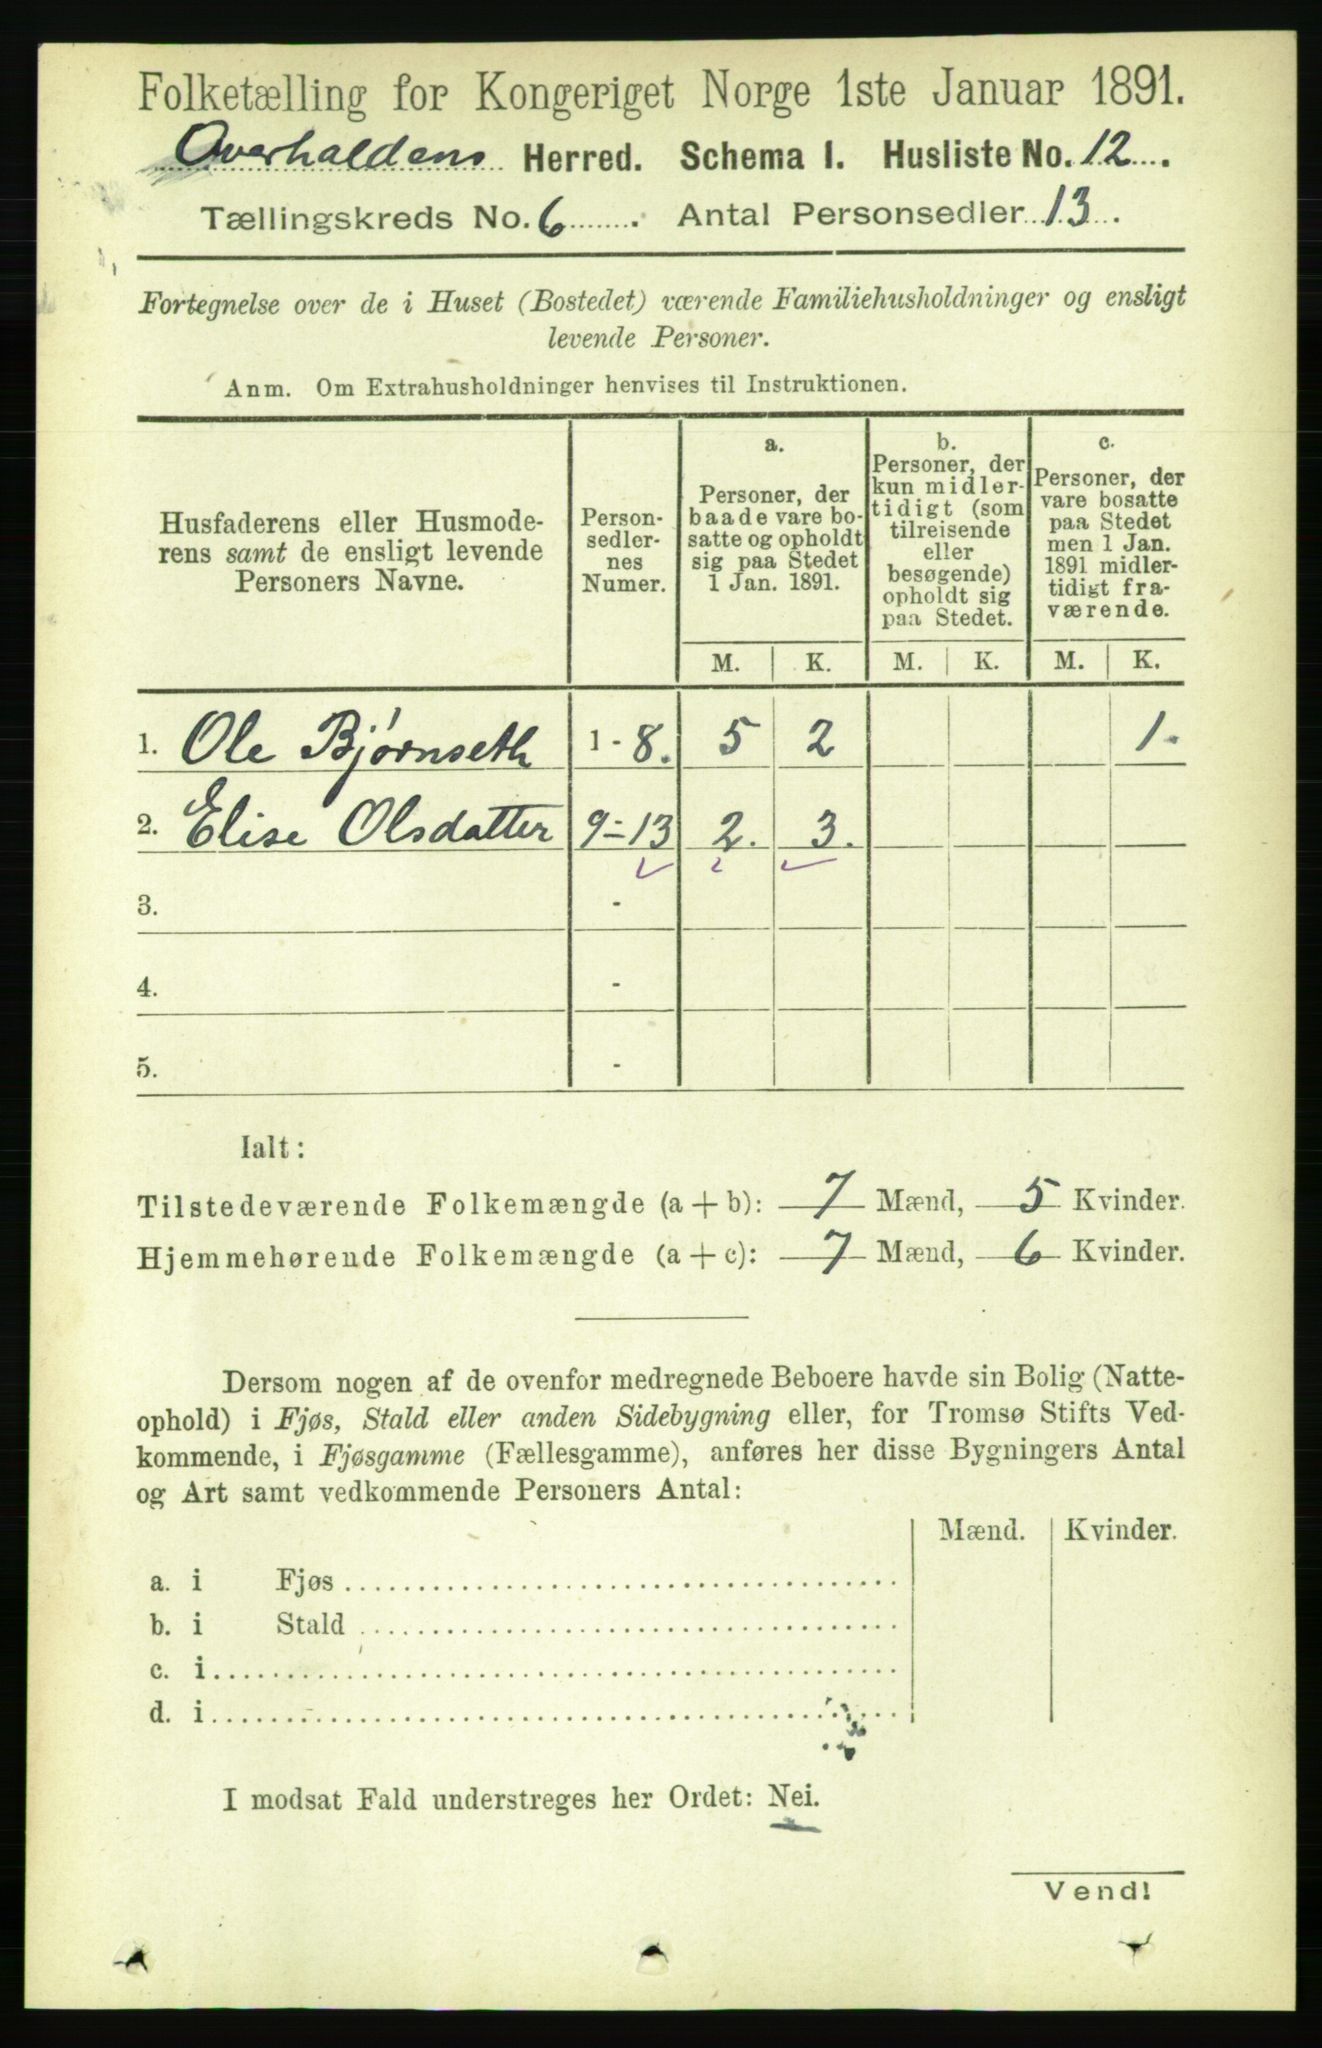 Folketælling for Kongeriget Norge 1ste Januar 1891.
Overhaldens Herred. Schema I. Husliste No. 12.
Tællingskreds No. 6. Antal Personsedler 13.
Fortegnelse over de i Huset (Bostedet) værende Familiehusholdninger og ensligt
levende Personer.
Anm. Om Extrahusholdninger henvises til Instruktionen.
Husfaderens eller Husmode-
rens samt de ensligt levende
Personers Navne.
Person-
sedler-
nes
Numer.
a.
Personer, der
baade vare bo-
satte og opholdt
sig paa Stedet
1 Jan. 1891.
b.
Personer, der
kun midler-
tidigt (som
tilreisende
eller
besøgende)
opholdt sig
paa Stedet.
c.
Personer, der
vare bosatte
paa Stedet
men 1 Jan.
1891 midler-
tidigt fra-
værende.
M. K. M. K. M. K.
1. Ole Bjørnseth 1 - 8. 5 2 1.
2. Elise Olsdatter 9 - 13 2. 3.
3. -
4. -
5. -
Ialt:
Tilstedeværende Folkemængde (a + b): 7 Mænd, 5 Kvinder.
Hjemmehørende Folkemængde (a + c): 7 Mænd, 6 Kvinder.
Dersom nogen af de ovenfor medregnede Beboere havde sin Bolig (Natte-
ophold) i Fjøs, Stald eller anden Sidebygning eller, for Tromsø Stifts Ved-
kommende, i Fjøsgamme (Fællesgamme), anføres her disse Bygningers Antal
og Art samt vedkommende Personers Antal:
Mænd. Kvinder.
a. i Fjøs
b. i Stald
c. i
d. i
I modsat Fald understreges her Ordet: Nei.
Vend!